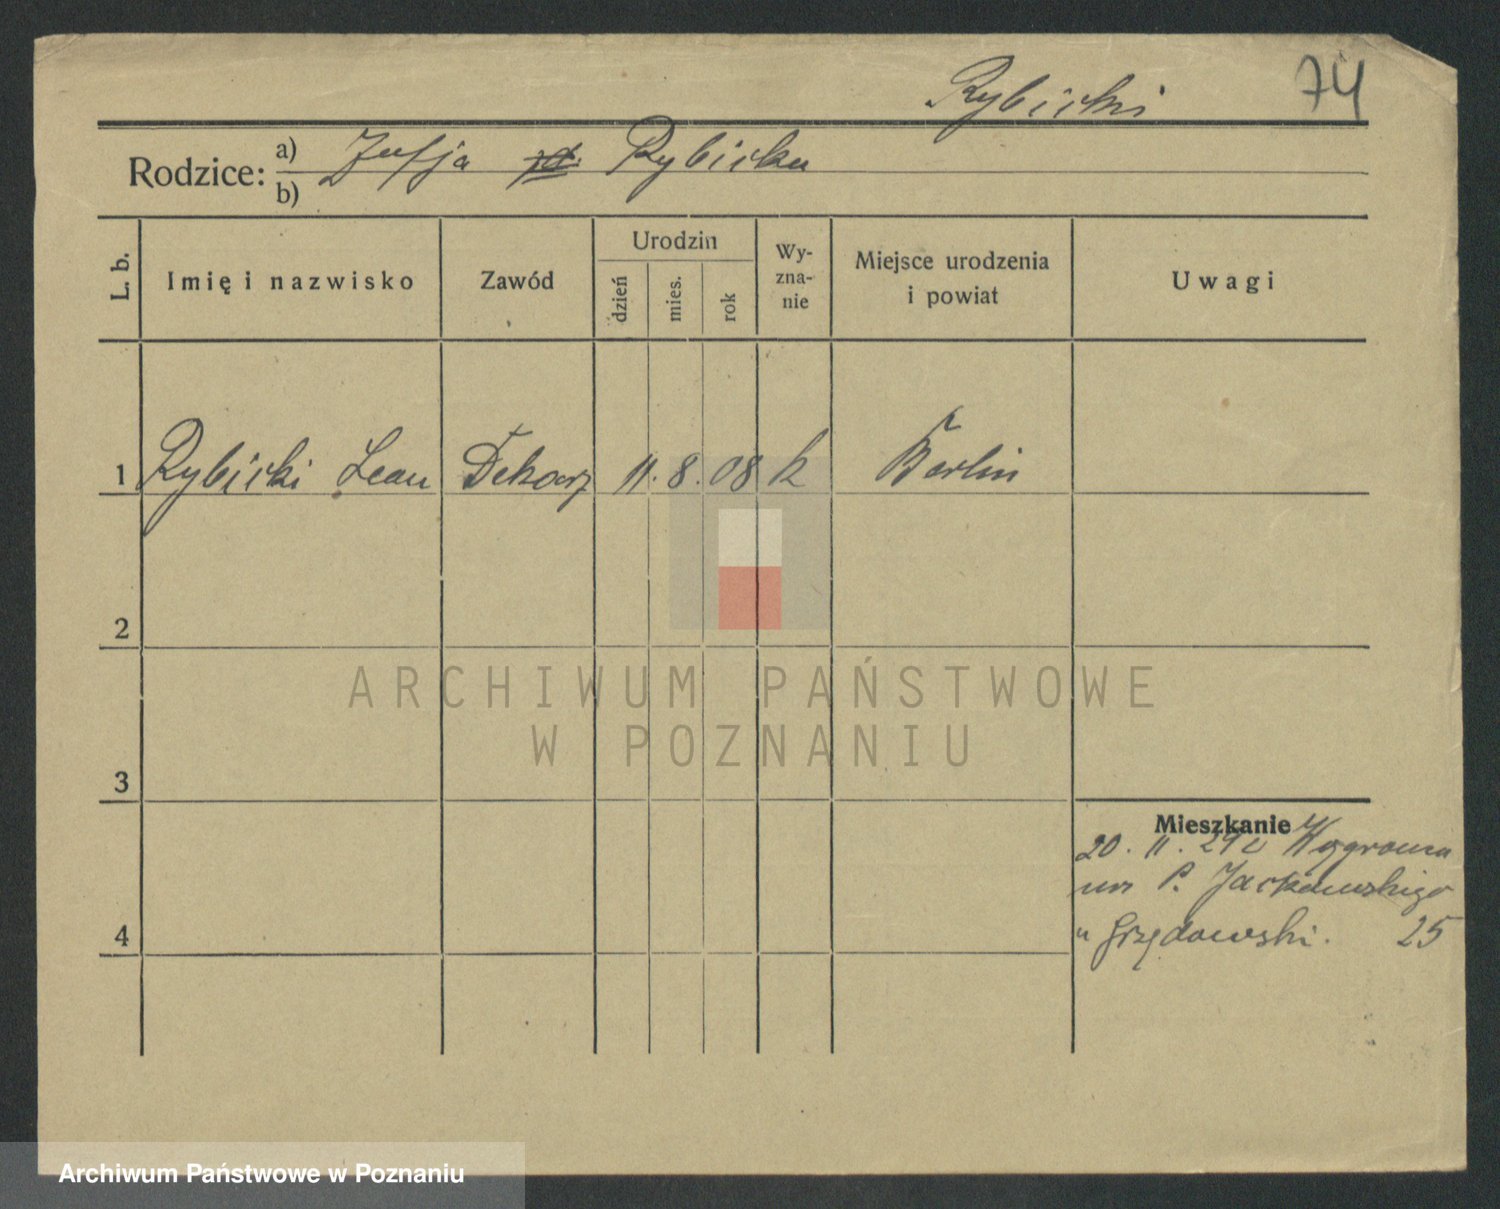 Rybicki 74
Rodzice: a) Zofja Rybicka
b)
L. b. Imię i nazwisko Zawód Urodzin dzień mies. rok Wy-
zna-
nie Miejsce urodzenia
i powiat Uwagi
1 Rybicki Leon 11. 8. 08 k Berlin
2
3
4
Mieszkanie
20. 11. 29
P. Jackowskiego
u Grzędowski. 25
ARCHIWUM PAŃSTWOWE
W POZNANIU
Archiwum Państwowe w Poznaniu